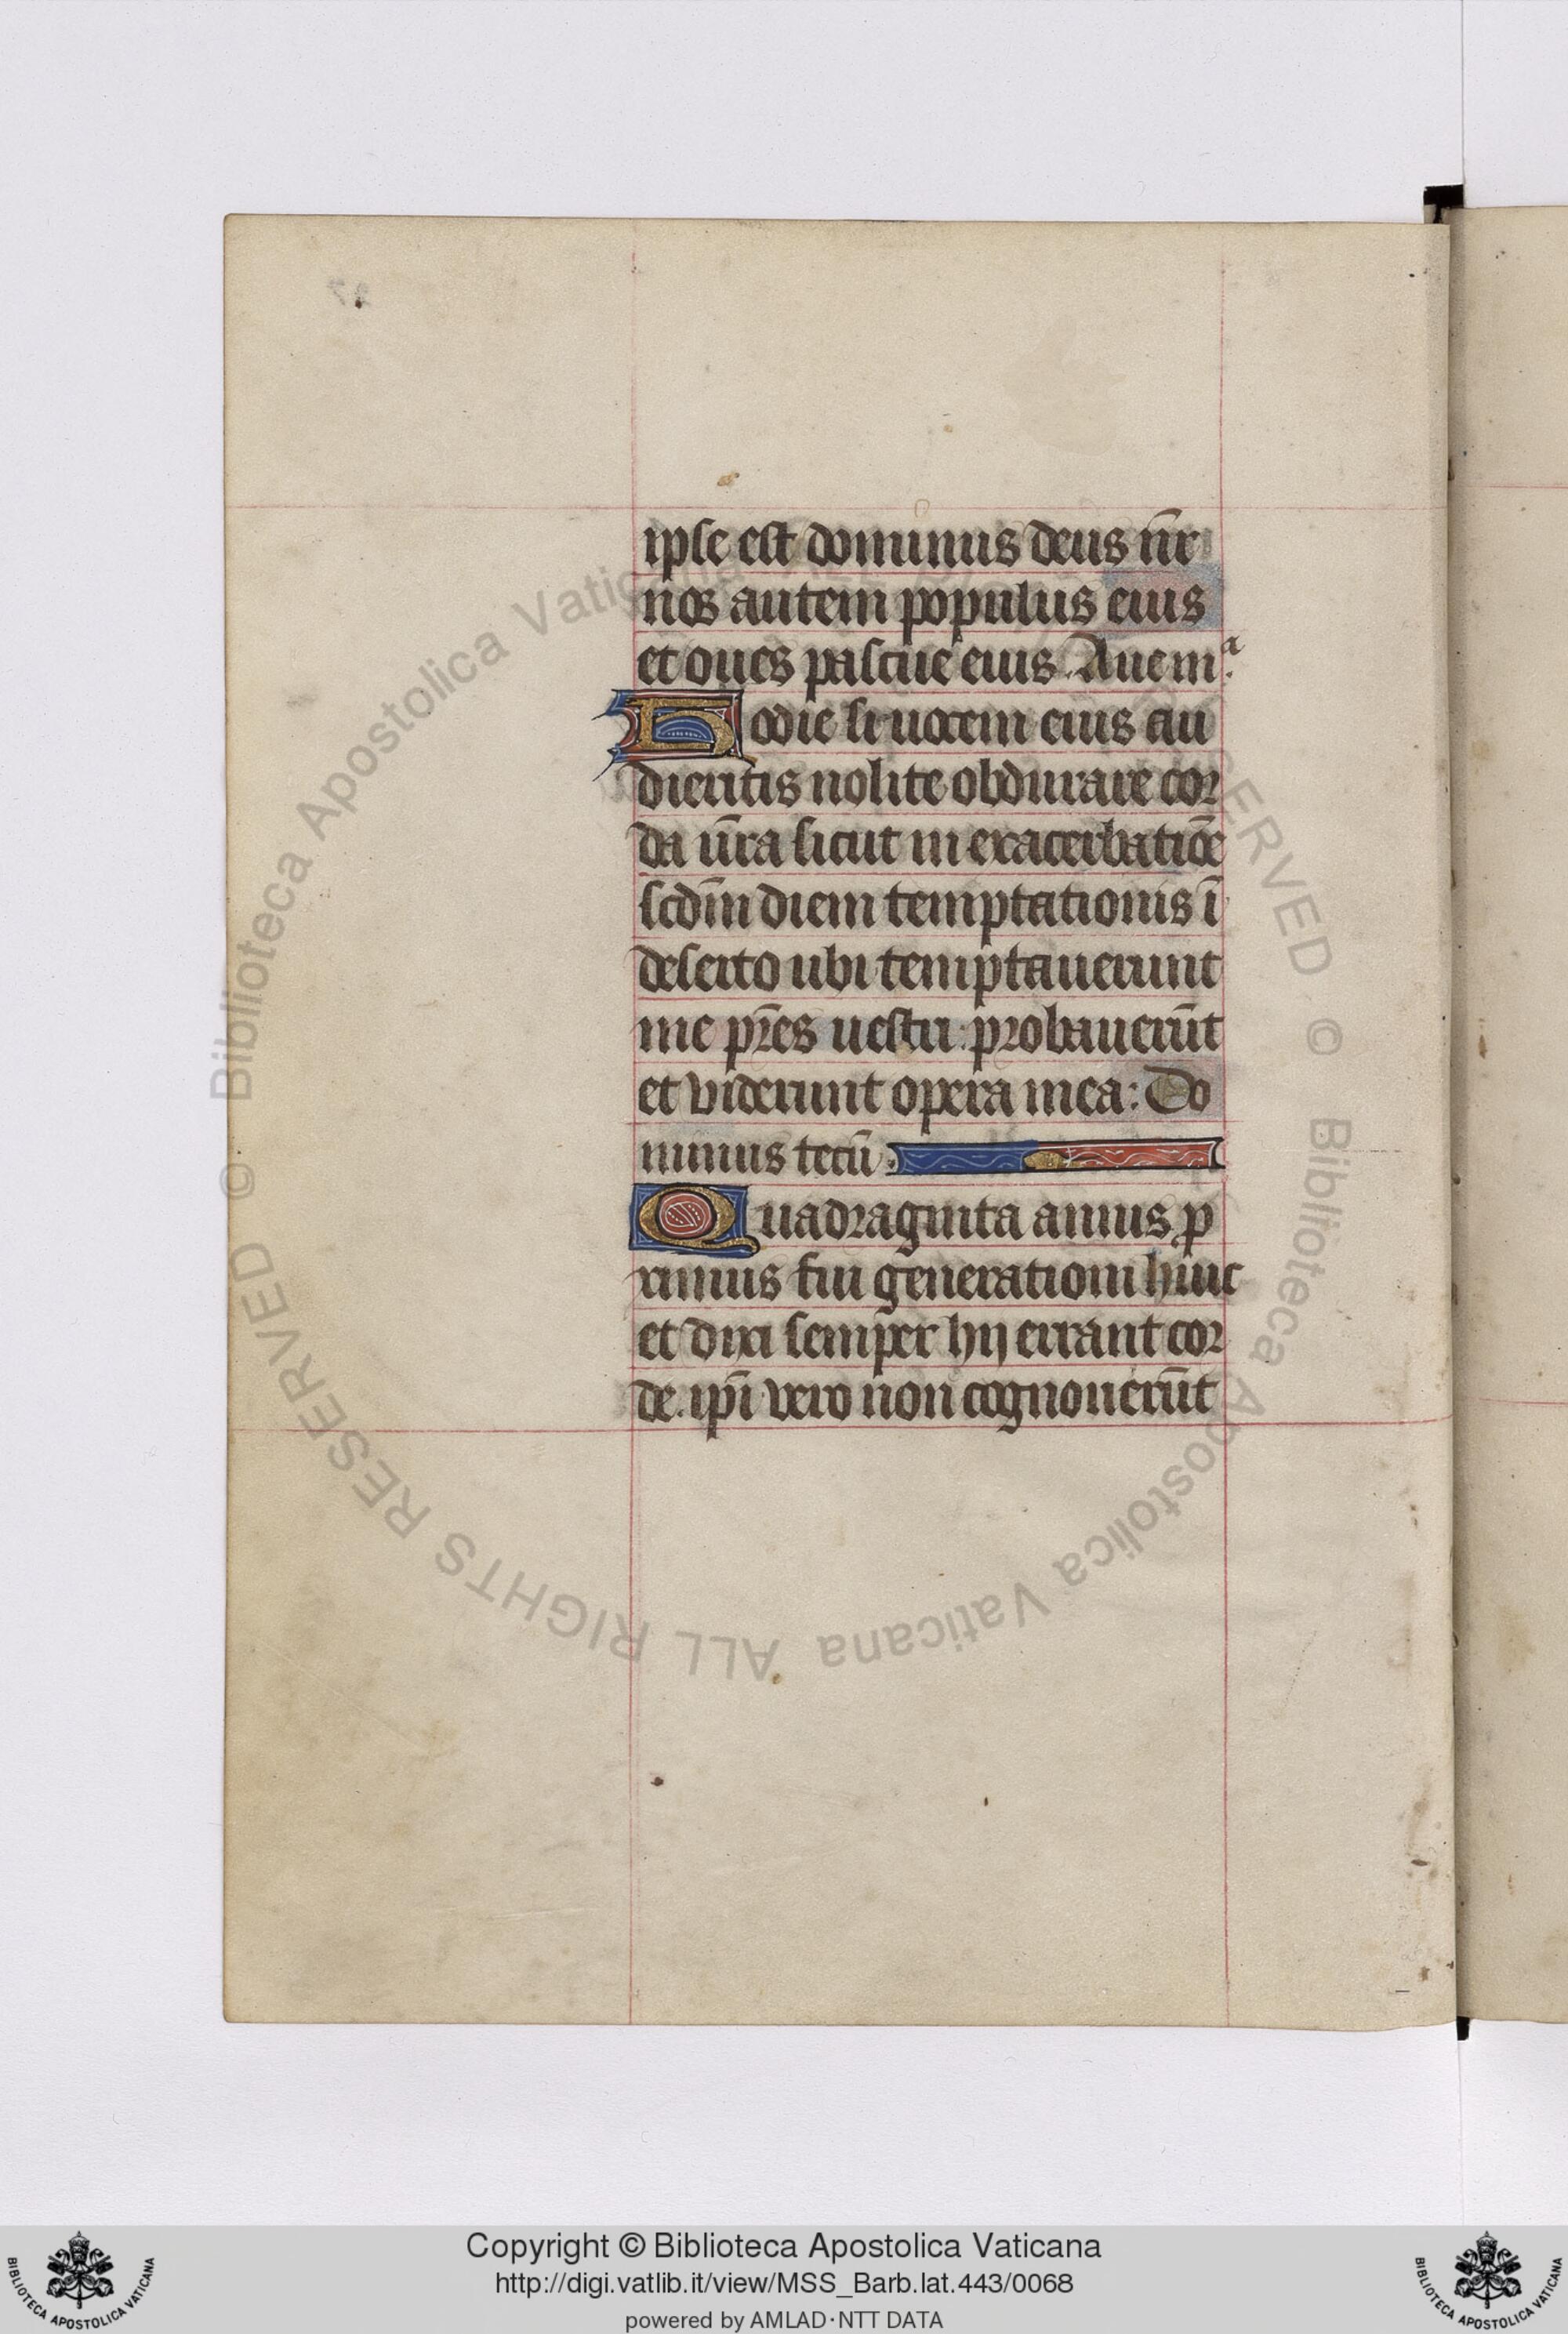 ipse est dominus deus nr̄
nos autem populus eius
et oues pascue eius. Aue mᵃ.
Hodie si uocem eius au
dieritis nolite obdurare cor
da ur̄a sicut in exacerbatiōe
scdm̄ diem temptationis ī
deserto ubi temptauerunt
me pr̄es uestri: probauerūt
et viderunt opera mea: Do
minus tecū.
Quadraginta annis ꝓ
ximus fui generationi huic
et dixi semper hij errant cor
de. ip̄i vero non cognouerūt
Copyright © Biblioteca Apostolica Vaticana
http://digi.vatlib.it/view/MSS_Barb.lat.443/0068
powered by AMLAD·NTT DATA
BIBLIOTECA APOSTOLICA VATICANA
BIBLIOTECA APOSTOLICA VATICANA
© Biblioteca Apostolica Vaticana ALL RIGHTS RESERVED © Biblioteca Apostolica Vaticana ALL RIGHTS RESERVED